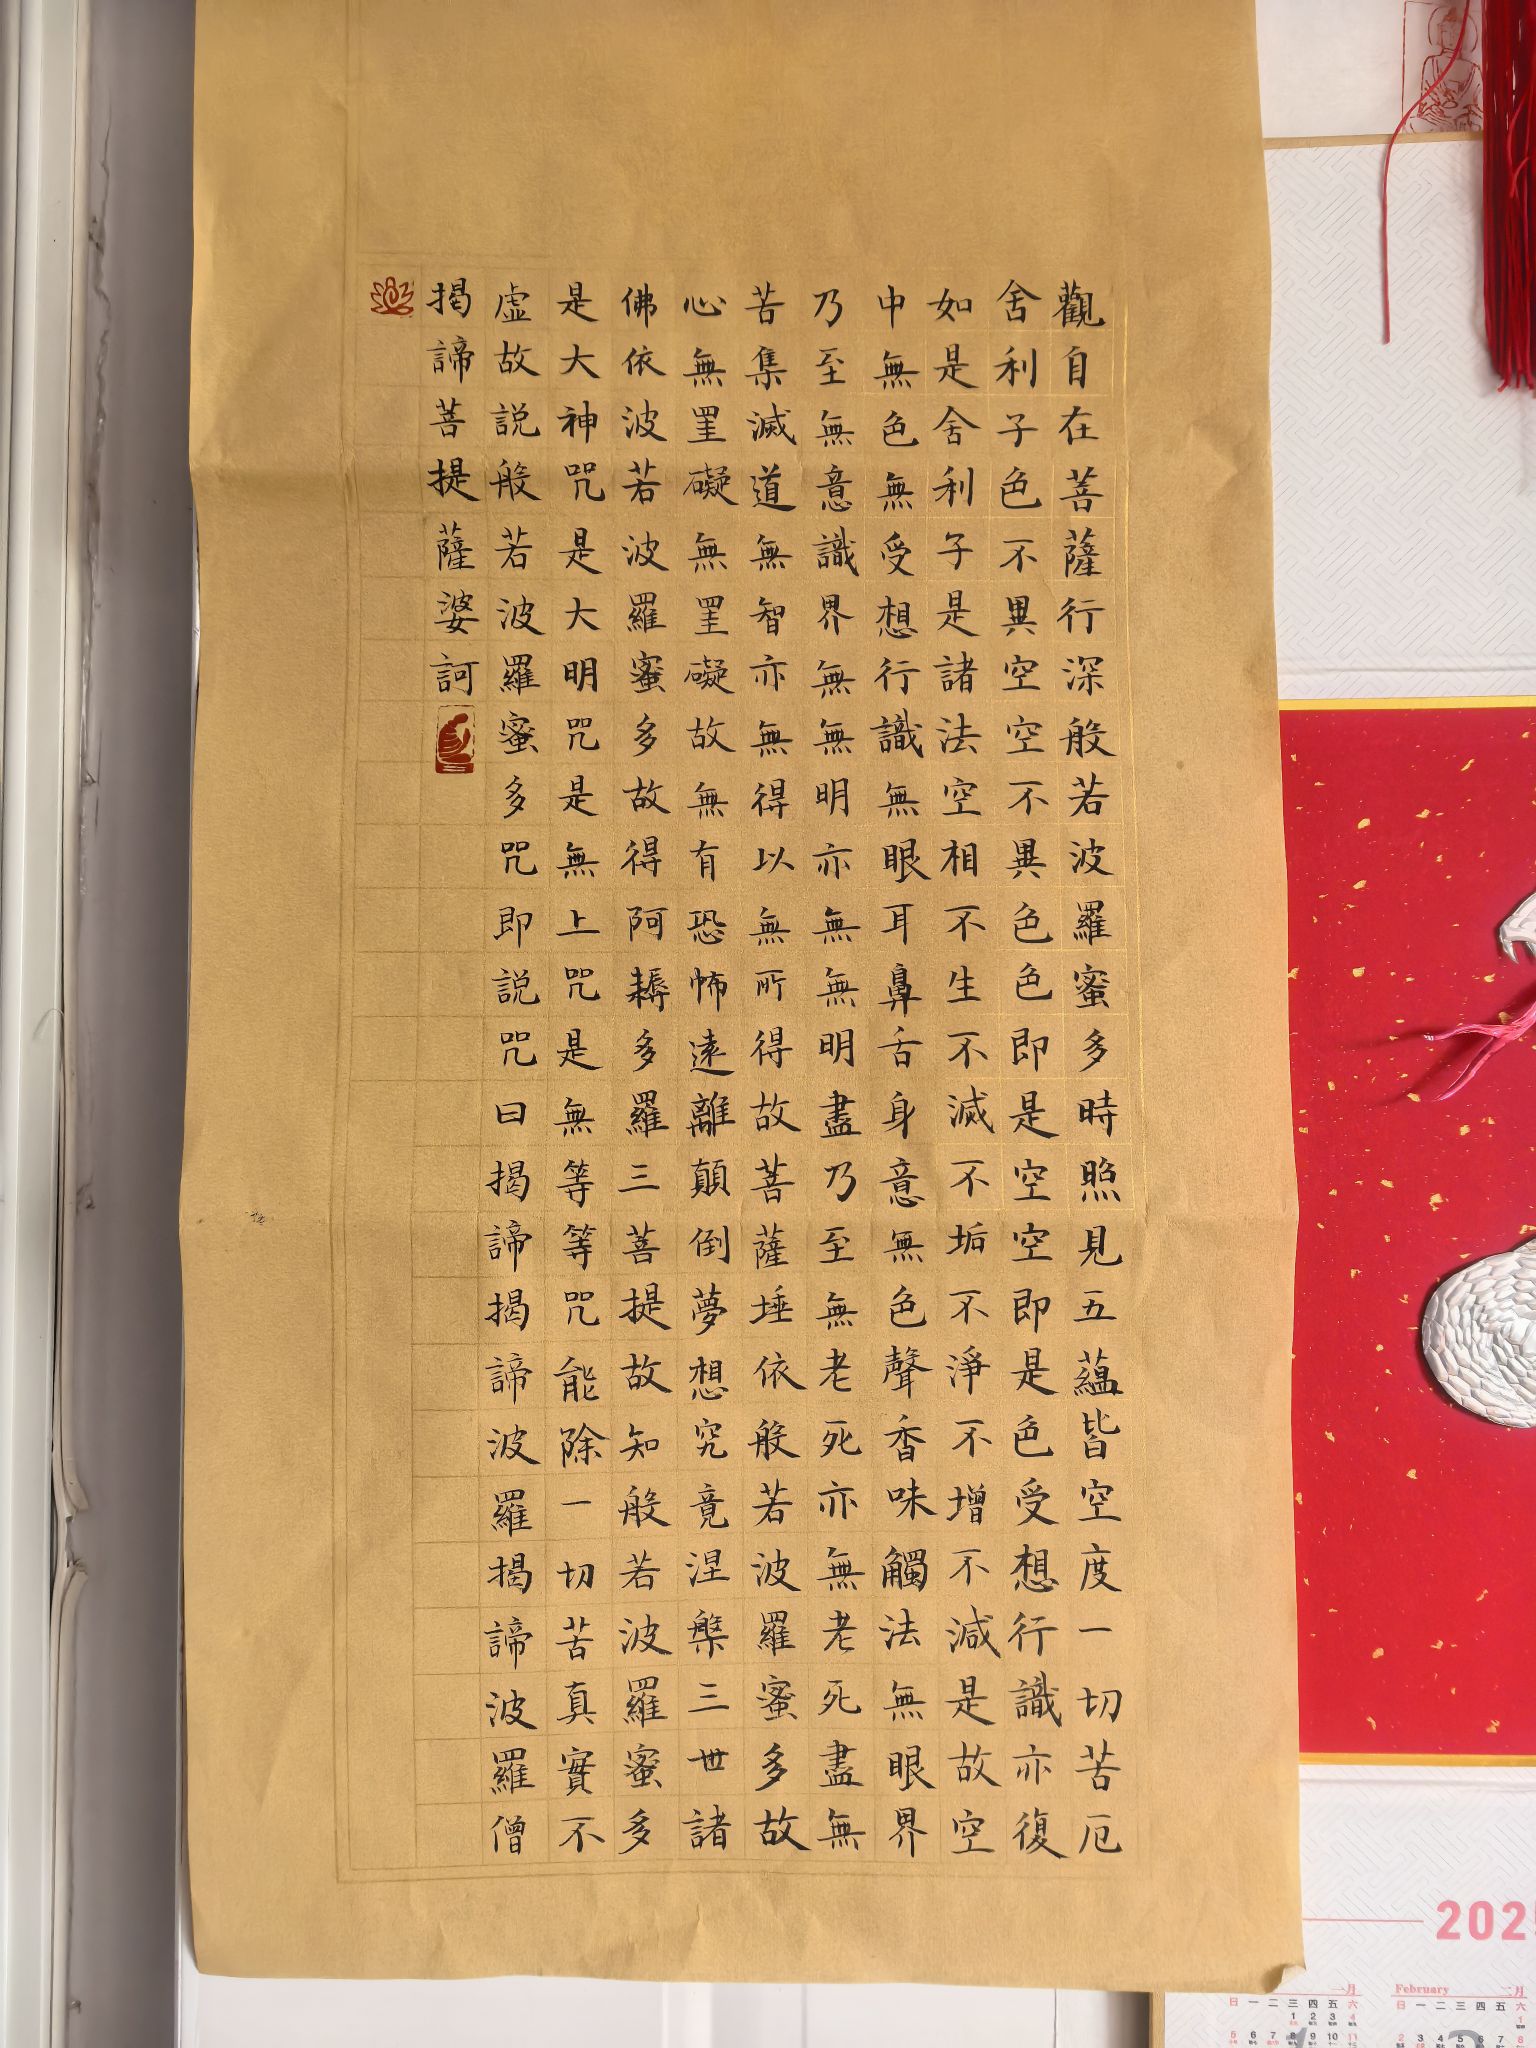 觀自在菩薩行深般若波羅蜜多時照見五蘊皆空度一切苦厄
舍利子色不異空空不異色色即是空空即是色受想行識亦復
如是舍利子是諸法空相不生不滅不垢不淨不增不減是故空
中無色無受想行識無眼耳鼻舌身意無色聲香味觸法無眼界
乃至無意識界無無明亦無無明盡乃至無老死亦無老死盡無
苦集滅道無智亦無得以無所得故菩薩埵依般若波羅蜜多故
心無罣礙無罣礙故無有恐怖遠離顛倒夢想究竟涅槃三世諸
佛依波若波羅蜜多故得阿耨多羅三菩提故知般若波羅蜜多
是大神咒是大明咒是無上咒是無等等咒能除一切苦真實不
虛故說般若波羅蜜多咒即說咒曰揭諦揭諦波羅揭諦波羅僧
揭諦菩提薩婆訶
202
一月 February 二月
日 一 二 三 四 五 六 日 一 二 三 四 五 六
1 2 3 4 1
5 6 7 8 9 10 11 2 3 4 5 6 7 8